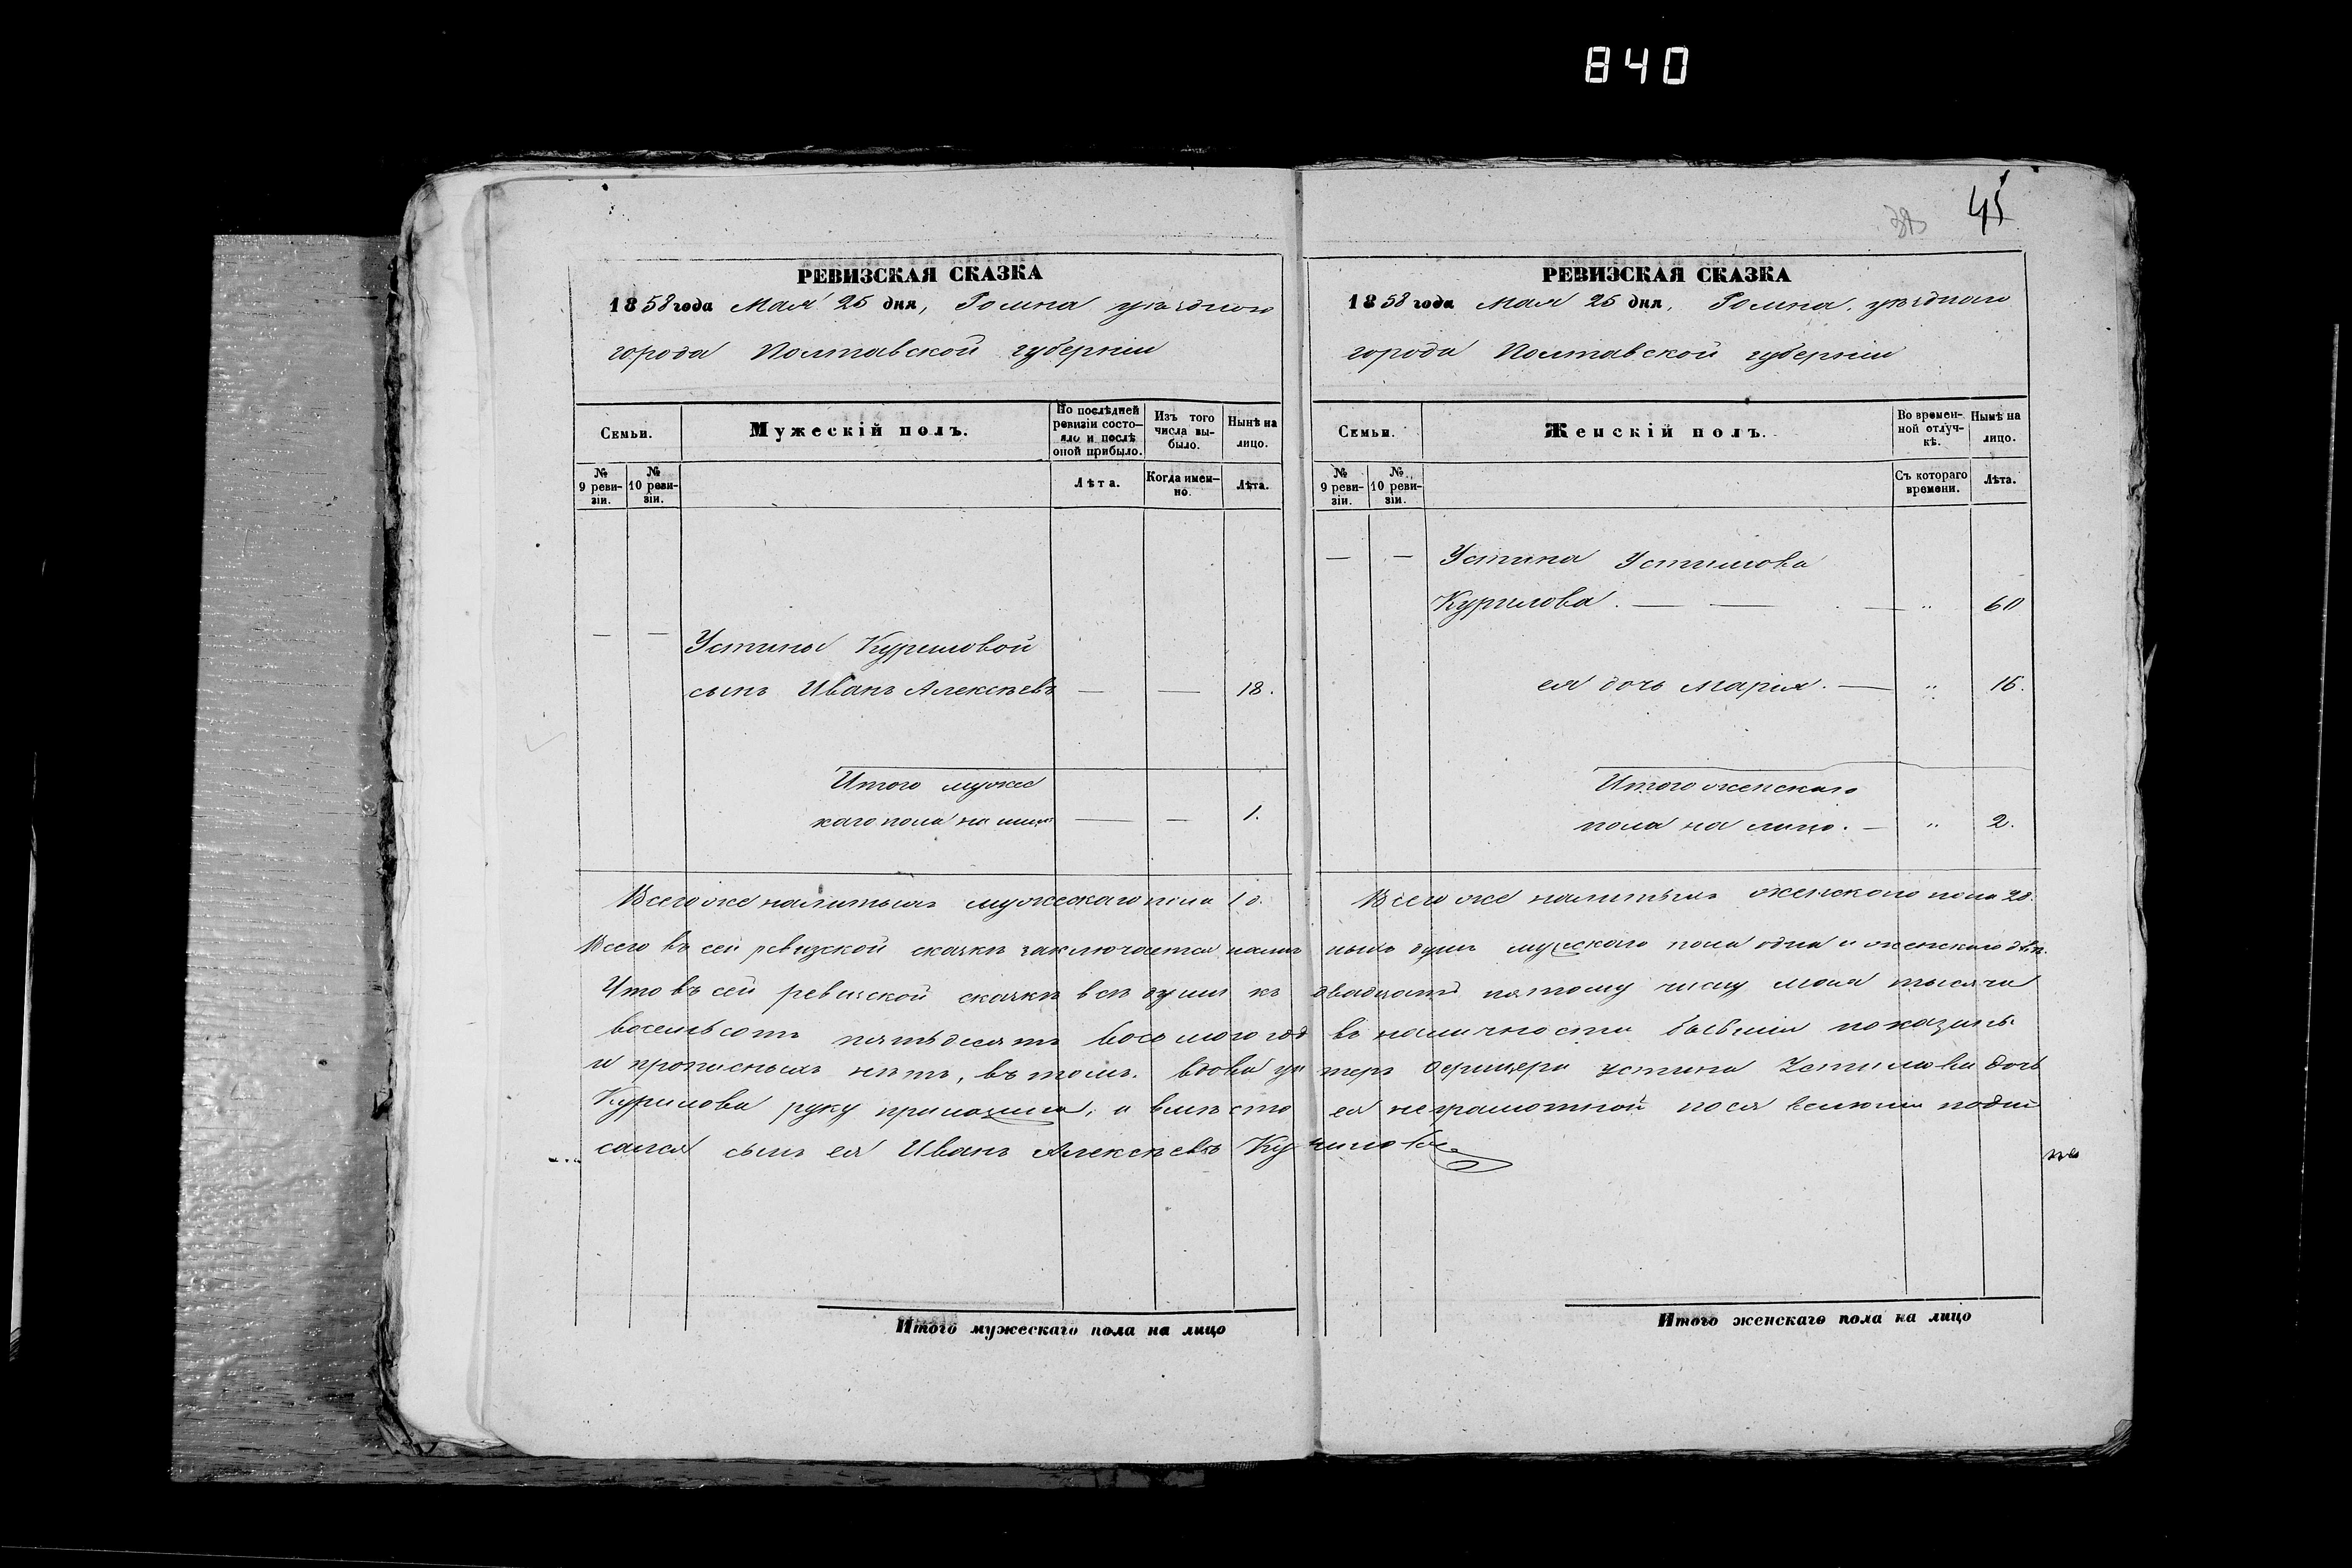 840
45
РЕВИЗСКАЯ СКАЗКА
1858 года Мая 25 дня, Ромна уѣзднаго
города Полтавской губерніи
Семьи.
Мужескій полъ.
По послѣдней ревизіи состояло и послѣ оной прибыло.
Изъ того числа выбыло.
Нынѣ на лицо.
№ 9 ревизіи.
№ 10 ревизіи.
Лѣта.
Когда именно.
Лѣта.
— — Устины Куриловой
сынъ Иванъ Алексѣевъ — — 18.
Итого мужес
каго пола на лицо — — 1.
Всего же наличныхъ мужескаго пола 1 д.
РЕВИЗСКАЯ СКАЗКА
1858 года Мая 25 дня, Ромна, уѣзднаго
города Полтавской губерніи
Семьи.
Женскій полъ.
Во временной отлучкѣ.
Нынѣ на лицо.
№ 9 ревизіи.
№ 10 ревизіи.
Съ котораго времени.
Лѣта.
— — Устина Устимова
Курилова. — — — „ 60
ея дочь Марія. — „ 16.
Итого женскаго
пола на лицо. — „ 2.
Всего же наличныхъ женскаго пола 2 д.
Всего въ сей ревизской сказкѣ заключается налич ныхъ душъ мужескаго пола одна и женскаго двѣ.
Что въ сей ревизской сказкѣ всѣ души къ двадцать пятому числу мая тысяча
восемьсотъ пятьдесятъ восьмого год въ наличности бывшія показаны
и прописныхъ нѣтъ, въ томъ. вдова ун теръ офицера Устина Устимова дочь
Курилова руку приложила, а вмѣсто ея неграмотной подпи
сался сынъ ея Иванъ Алексѣевъ Ку рилов
Итого мужескаго пола на лицо
Итого женскаго пола на лицо